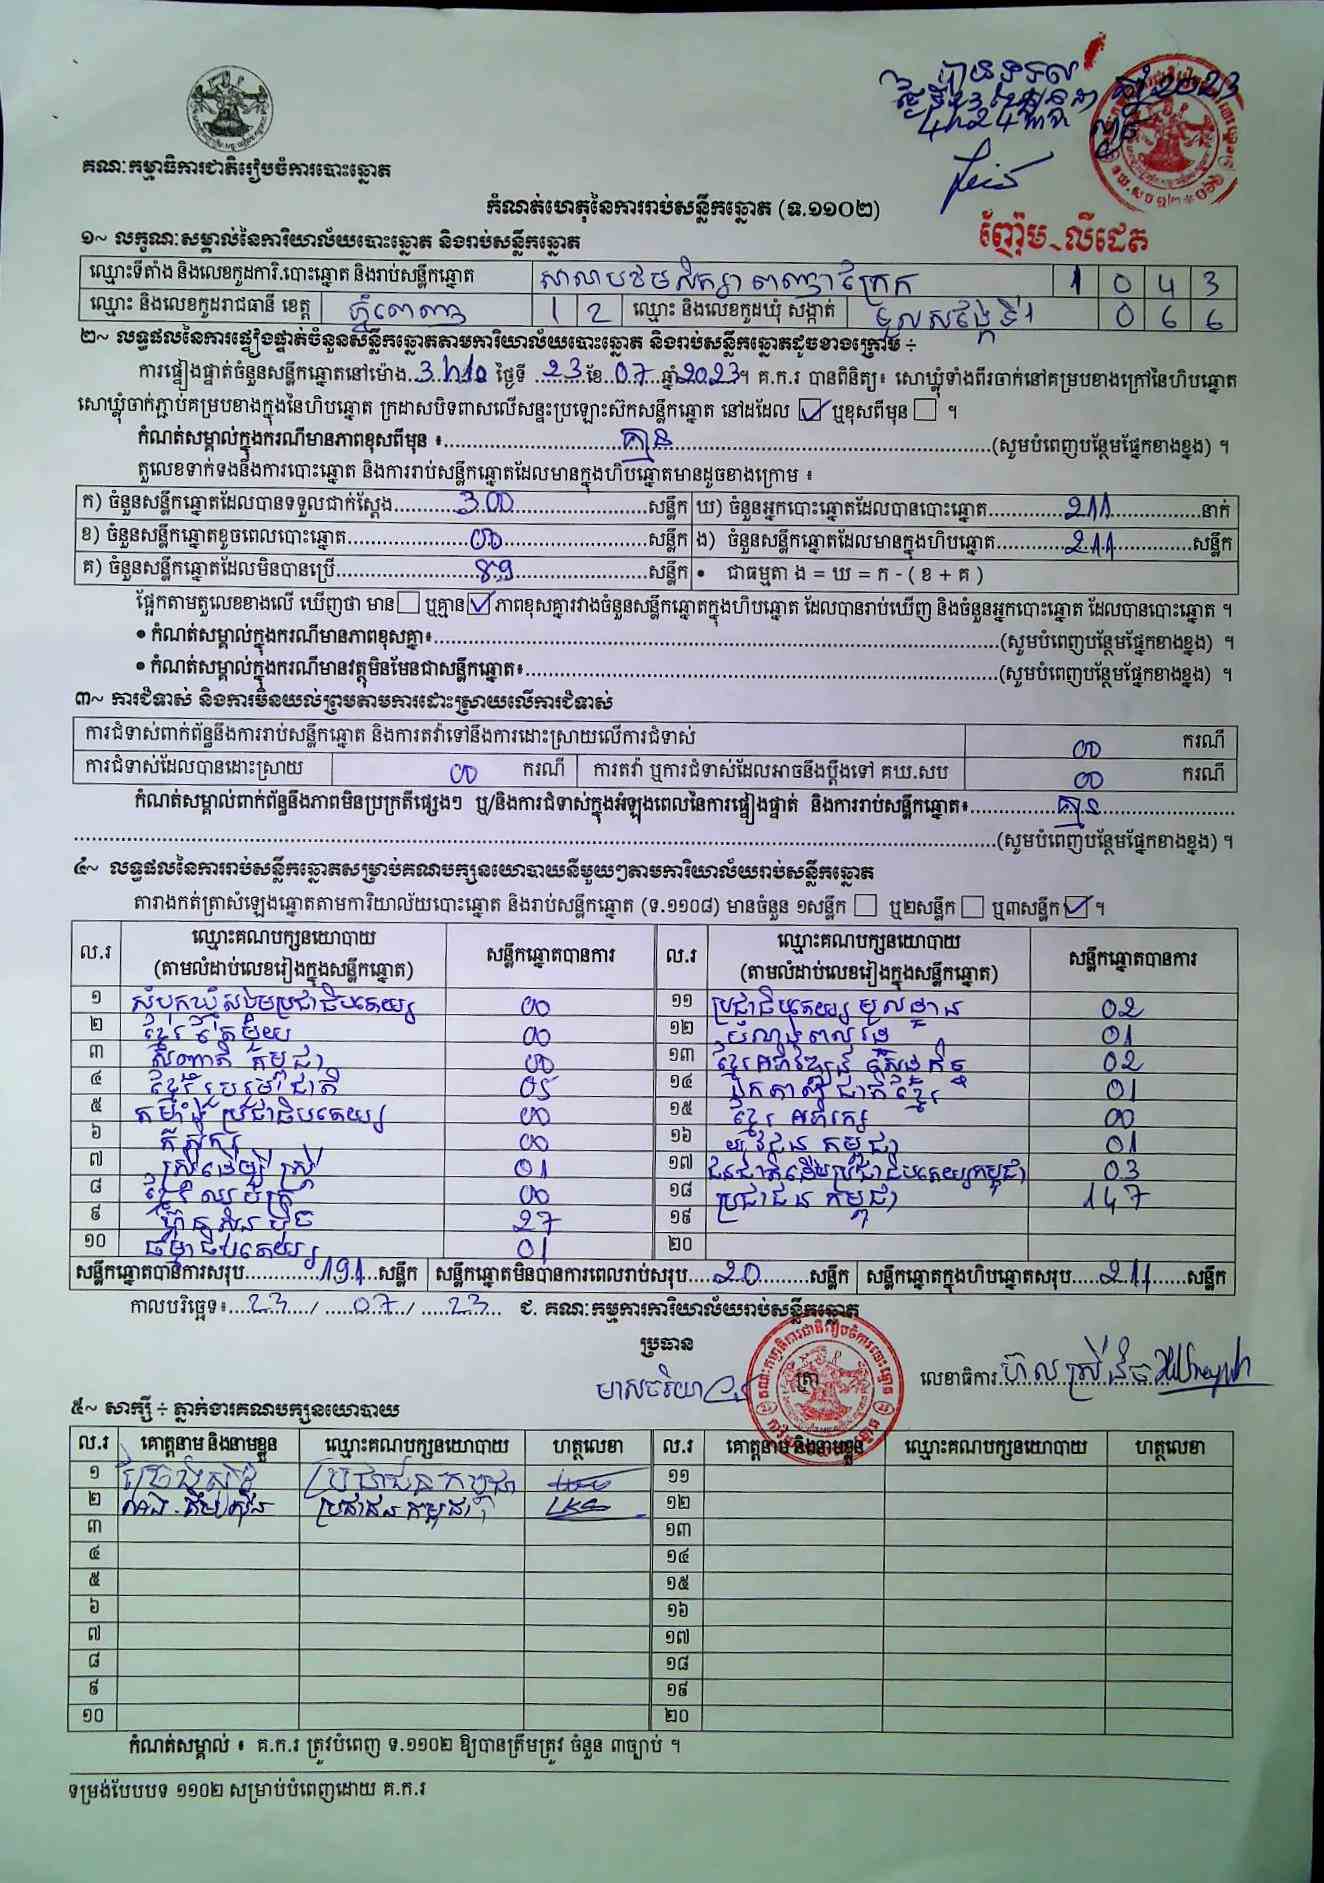 បានទទួល
ថ្ងៃទី23 ខែកក្កដា ឆ្នាំ2023
4h24នាទី ល្ងាច
ញ៉ែម-លីដេត
គណៈកម្មាធិការជាតិរៀបចំការបោះឆ្នោត
កំណត់ហេតុនៃការរាប់សន្លឹកឆ្នោត (ទ.១១០២)
១~ លក្ខណៈសម្គាល់នៃការិយាល័យបោះឆ្នោត និងរាប់សន្លឹកឆ្នោត
ឈ្មោះទីតាំង និងលេខកូដការិ.បោះឆ្នោត និងរាប់សន្លឹកឆ្នោត សាលាបឋមសិក្សា ពញាក្រែក 1 0 4 3
ឈ្មោះ និងលេខកូដរាជធានី ខេត្ត ភ្នំពេញ 1 2 ឈ្មោះ និងលេខកូដឃុំ សង្កាត់ ទួលសង្កែទី1 0 6 6
២~ លទ្ធផលនៃការផ្ទៀងផ្ទាត់ចំនួនសន្លឹកឆ្នោតតាមការិយាល័យបោះឆ្នោត និងរាប់សន្លឹកឆ្នោតដូចខាងក្រោម ÷
ការផ្ទៀងផ្ទាត់ចំនួនសន្លឹកឆ្នោតនៅម៉ោង...3h10 ថ្ងៃទី ...23...ខែ..07...ឆ្នាំ2023។ គ.ក.រ បានពិនិត្យ៖ សោឃ្លុំទាំងពីរចាក់នៅគម្របខាងក្រៅនៃហិបឆ្នោត
សោឃ្លុំចាក់ភ្ជាប់គម្របខាងក្នុងនៃហិបឆ្នោត ក្រដាសបិទពាសលើសន្ទះប្រឡោះស៊កសន្លឹកឆ្នោត នៅដដែល ☑ ឬខុសពីមុន ☐ ។
កំណត់សម្គាល់ក្នុងករណីមានភាពខុសពីមុន ៖...គ្មាន...(សូមបំពេញបន្ថែមផ្នែកខាងខ្នង) ។
តួលេខទាក់ទងនឹងការបោះឆ្នោត និងការរាប់សន្លឹកឆ្នោតដែលមានក្នុងហិបឆ្នោតមានដូចខាងក្រោម ៖
ក) ចំនួនសន្លឹកឆ្នោតដែលបានទទួលជាក់ស្តែង...300...សន្លឹក ឃ) ចំនួនអ្នកបោះឆ្នោតដែលបានបោះឆ្នោត...211...នាក់
ខ) ចំនួនសន្លឹកឆ្នោតខូចពេលបោះឆ្នោត...00...សន្លឹក ង) ចំនួនសន្លឹកឆ្នោតដែលមានក្នុងហិបឆ្នោត...211...សន្លឹក
គ) ចំនួនសន្លឹកឆ្នោតដែលមិនបានប្រើ...89...សន្លឹក • ជាធម្មតា ង = ឃ = ក - ( ខ + គ )
ផ្អែកតាមតួលេខខាងលើ ឃើញថា មាន☐ ឬគ្មាន☑ភាពខុសគ្នារវាងចំនួនសន្លឹកឆ្នោតក្នុងហិបឆ្នោត ដែលបានរាប់ឃើញ និងចំនួនអ្នកបោះឆ្នោត ដែលបានបោះឆ្នោត ។
• កំណត់សម្គាល់ក្នុងករណីមានភាពខុសគ្នា៖...(សូមបំពេញបន្ថែមផ្នែកខាងខ្នង) ។
• កំណត់សម្គាល់ក្នុងករណីមានវត្ថុមិនមែនជាសន្លឹកឆ្នោត៖...(សូមបំពេញបន្ថែមផ្នែកខាងខ្នង) ។
៣~ ការជំទាស់ និងការមិនយល់ព្រមតាមការដោះស្រាយលើការជំទាស់
ការជំទាស់ពាក់ព័ន្ធនឹងការរាប់សន្លឹកឆ្នោត និងការតវ៉ាទៅនឹងការដោះស្រាយលើការជំទាស់ 00 ករណី
ការជំទាស់ដែលបានដោះស្រាយ 00 ករណី ការតវ៉ា ឬការជំទាស់ដែលអាចនឹងប្តឹងទៅ គឃ.សប 00 ករណី
កំណត់សម្គាល់ពាក់ព័ន្ធនឹងភាពមិនប្រក្រតីផ្សេងៗ ឬ/និងការជំទាស់ក្នុងអំឡុងពេលនៃការផ្ទៀងផ្ទាត់ និងការរាប់សន្លឹកឆ្នោត៖...គ្មាន...
...(សូមបំពេញបន្ថែមផ្នែកខាងខ្នង) ។
៤~ លទ្ធផលនៃការរាប់សន្លឹកឆ្នោតសម្រាប់គណបក្សនយោបាយនីមួយៗតាមការិយាល័យរាប់សន្លឹកឆ្នោត
តារាងកត់ត្រាសំឡេងឆ្នោតតាមការិយាល័យបោះឆ្នោត និងរាប់សន្លឹកឆ្នោត (ទ.១១០៨) មានចំនួន ១សន្លឹក ☐ ឬ២សន្លឹក ☐ ឬ៣សន្លឹក ☑ ។
ល.រ ឈ្មោះគណបក្សនយោបាយ (តាមលំដាប់លេខរៀងក្នុងសន្លឹកឆ្នោត) សន្លឹកឆ្នោតបានការ ល.រ ឈ្មោះគណបក្សនយោបាយ (តាមលំដាប់លេខរៀងក្នុងសន្លឹកឆ្នោត) សន្លឹកឆ្នោតបានការ
១ សំបុកឃ្មុំសង្គមប្រជាធិបតេយ្យ 00 ១១ ប្រជាធិបតេយ្យមូលដ្ឋាន 02
២ ខ្មែរតែមួយ 00 ១២ បំណងពលរដ្ឋ 01
៣ សញ្ជាតិកម្ពុជា 00 ១៣ ខ្មែរអភិវឌ្ឍន៍សេដ្ឋកិច្ច 02
៤ ខ្មែររួបរួមជាតិ 05 ១៤ ឯកភាពជាតិខ្មែរ 01
៥ កម្លាំងប្រជាធិបតេយ្យ 00 ១៥ ខ្មែរអភិរក្ស 00
៦ កសិករ 00 ១៦ យុវជនកម្ពុជា 01
៧ ស្ត្រីដើម្បីស្ត្រី 01 ១៧ ជនជាតិដើមប្រជាធិបតេយ្យកម្ពុជា 03
៨ ខ្មែរឈប់ក្រ 00 ១៨ ប្រជាជនកម្ពុជា 147
៩ ហ៊្វុនស៊ិនប៉ិច 27 ១៩
១០ ធម្មាធិបតេយ្យ 01 ២០
សន្លឹកឆ្នោតបានការសរុប...191...សន្លឹក សន្លឹកឆ្នោតមិនបានការពេលរាប់សរុប...20...សន្លឹក សន្លឹកឆ្នោតក្នុងហិបឆ្នោតសរុប...211...សន្លឹក
កាលបរិច្ឆេទ៖...23.../...07.../...23... ជ. គណៈកម្មការការិយាល័យរាប់សន្លឹកឆ្នោត
ប្រធាន
មាសចរិយា ត្រា លេខាធិការ...
៥~ សាក្សី ÷ ភ្នាក់ងារគណបក្សនយោបាយ
ល.រ គោត្តនាម និងនាមខ្លួន ឈ្មោះគណបក្សនយោបាយ ហត្ថលេខា ល.រ គោត្តនាម និងនាមខ្លួន ឈ្មោះគណបក្សនយោបាយ ហត្ថលេខា
១ ប្រជាជនកម្ពុជា ១១
២ ប្រជាជនកម្ពុជា ១២
៣ ១៣
៤ ១៤
៥ ១៥
៦ ១៦
៧ ១៧
៨ ១៨
៩ ១៩
១០ ២០
កំណត់សម្គាល់ ៖ គ.ក.រ ត្រូវបំពេញ ទ.១១០២ ឱ្យបានត្រឹមត្រូវ ចំនួន ៣ច្បាប់ ។
ទម្រង់បែបបទ ១១០២ សម្រាប់បំពេញដោយ គ.ក.រ